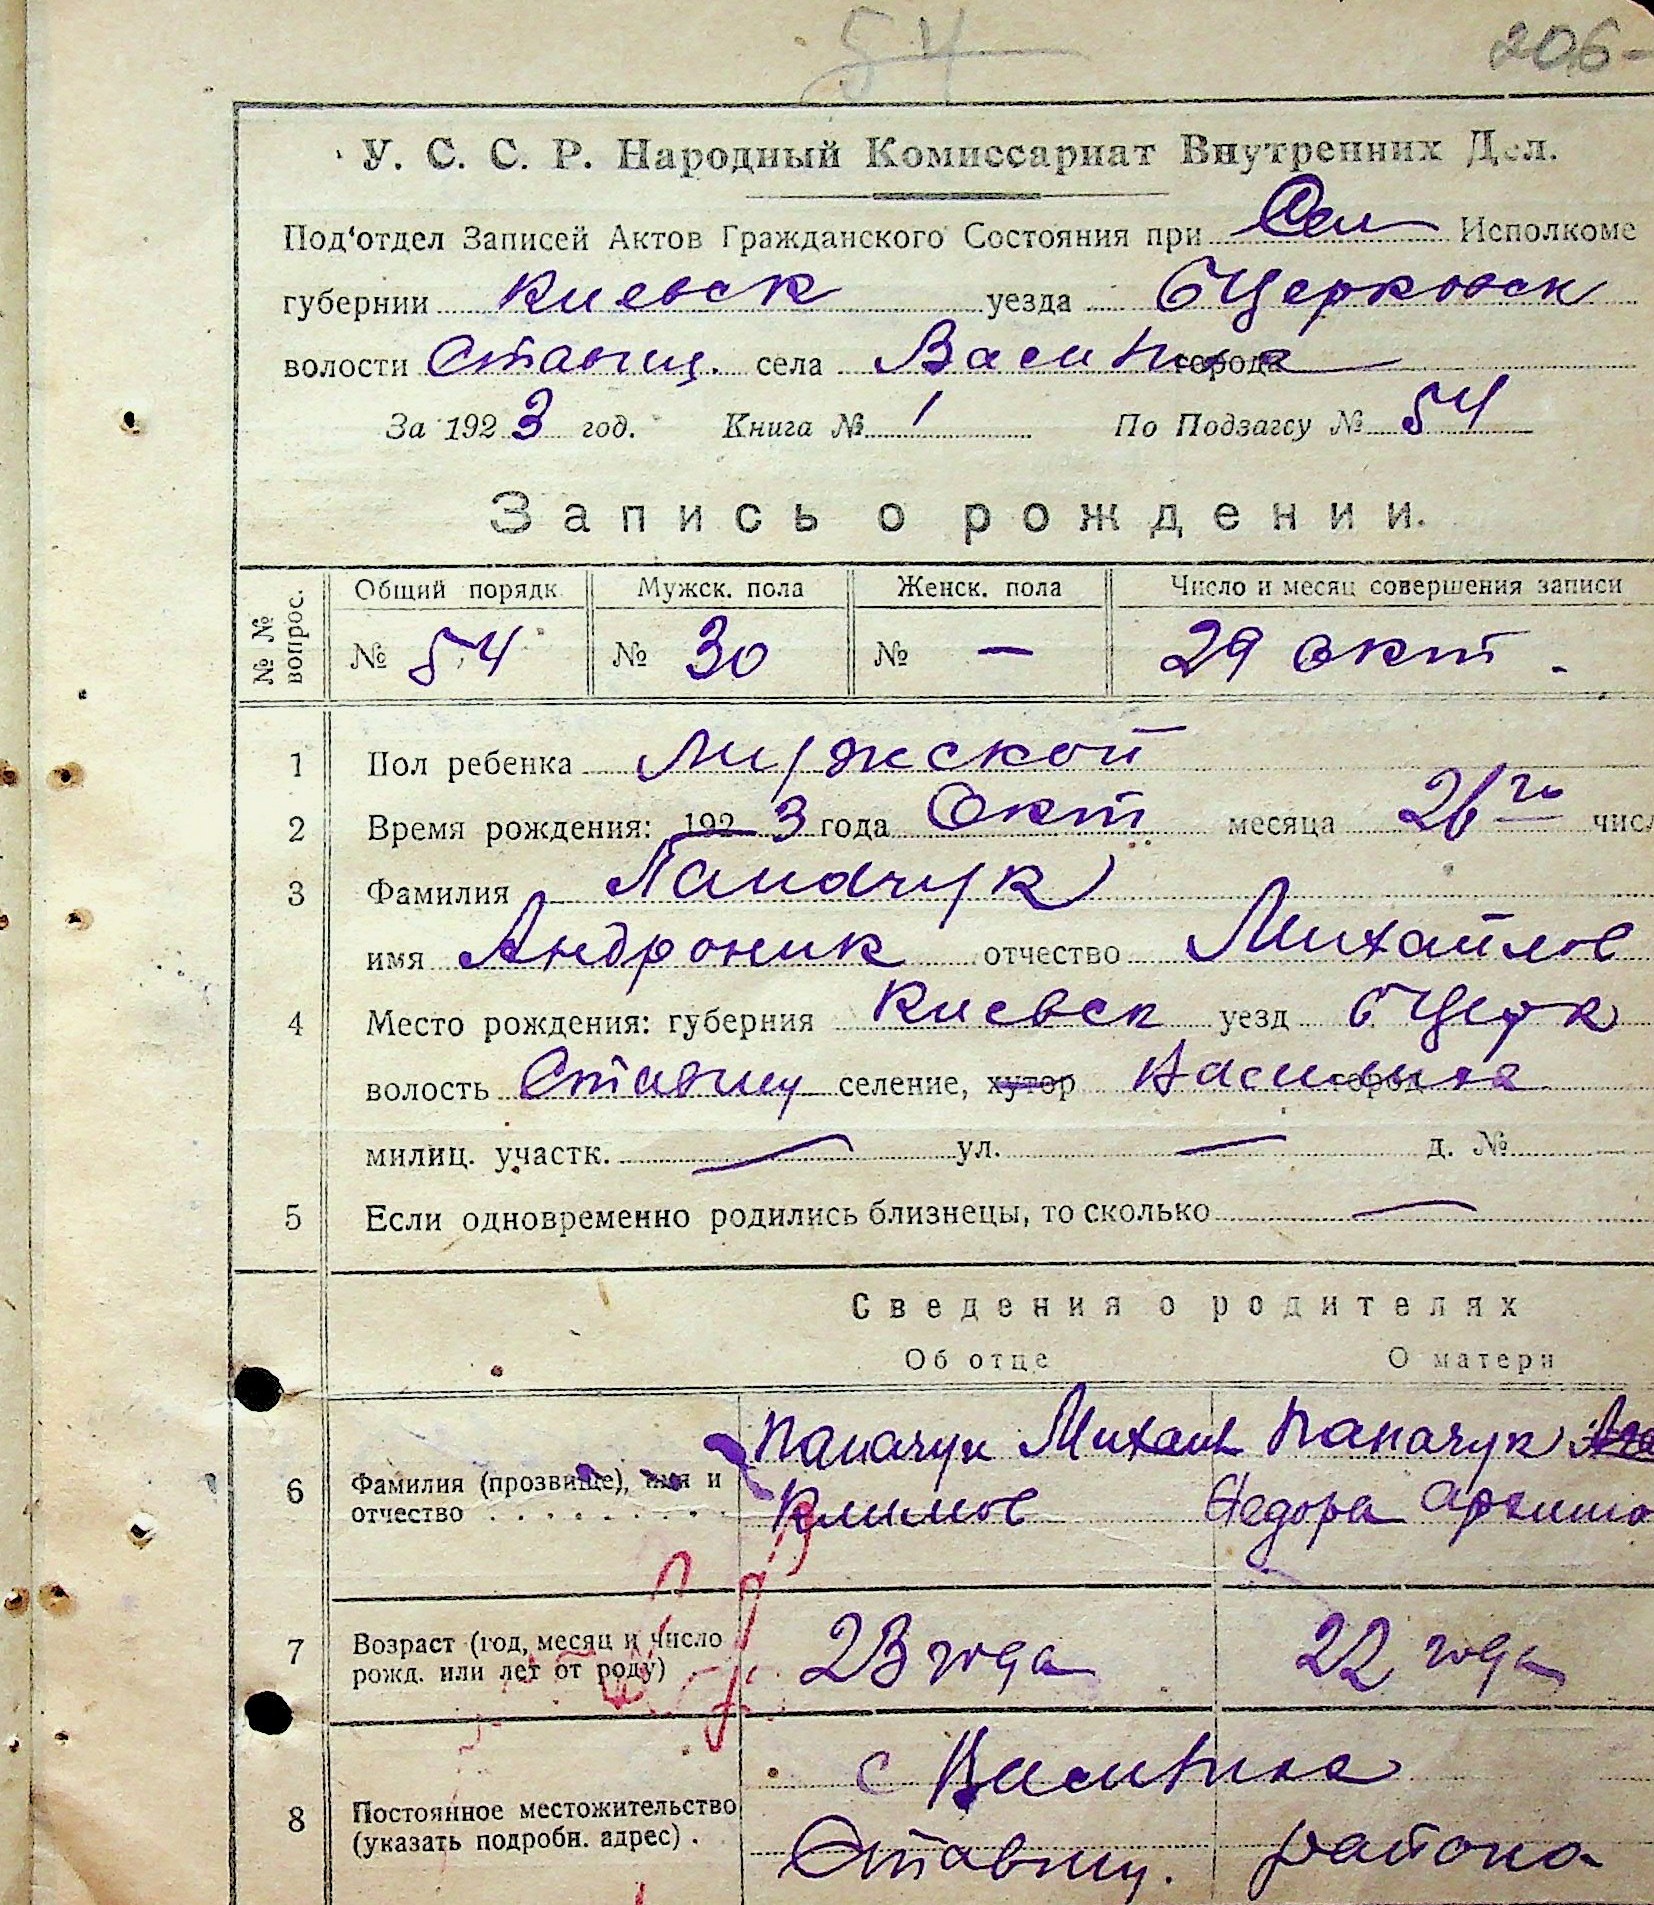 54
206-
У. С. С. Р. Народный Комиссариат Внутренних Дел.
Под‘отдел Записей Актов Гражданского Состояния при Сел Исполкоме
губернии Киевск уезда бЦерковск
волости Ставищ. села города
За 1923 год. Книга № 1 По Подзагсу № 54
Запись о рождении.
№ № вопрос. Общий порядк. Мужск. пола Женск. пола Число и месяц совершения записи
№ 54 № 30 № — 29 окт.
1 Пол ребенка Мужской
2 Время рождения: 1923 года Окт месяца 26го числ
3 Фамилия Папачук
имя Андроник отчество Михайлов
4 Место рождения: губерния Киевск уезд бЦерк
волость Ставищ селение, хутор город
милиц. участк. — ул. — д. №
5 Если одновременно родились близнецы, то сколько —
Сведения о родителях
Об отце О матери
Папачук Михаил Папачук
6 Фамилия (прозвище), имя и
отчество Климов Федора
7 Возраст (год, месяц и число
рожд. или лет от роду) 23 года 22 года
с
8 Постоянное местожительство
(указать подробн. адрес) . Ставищ. района